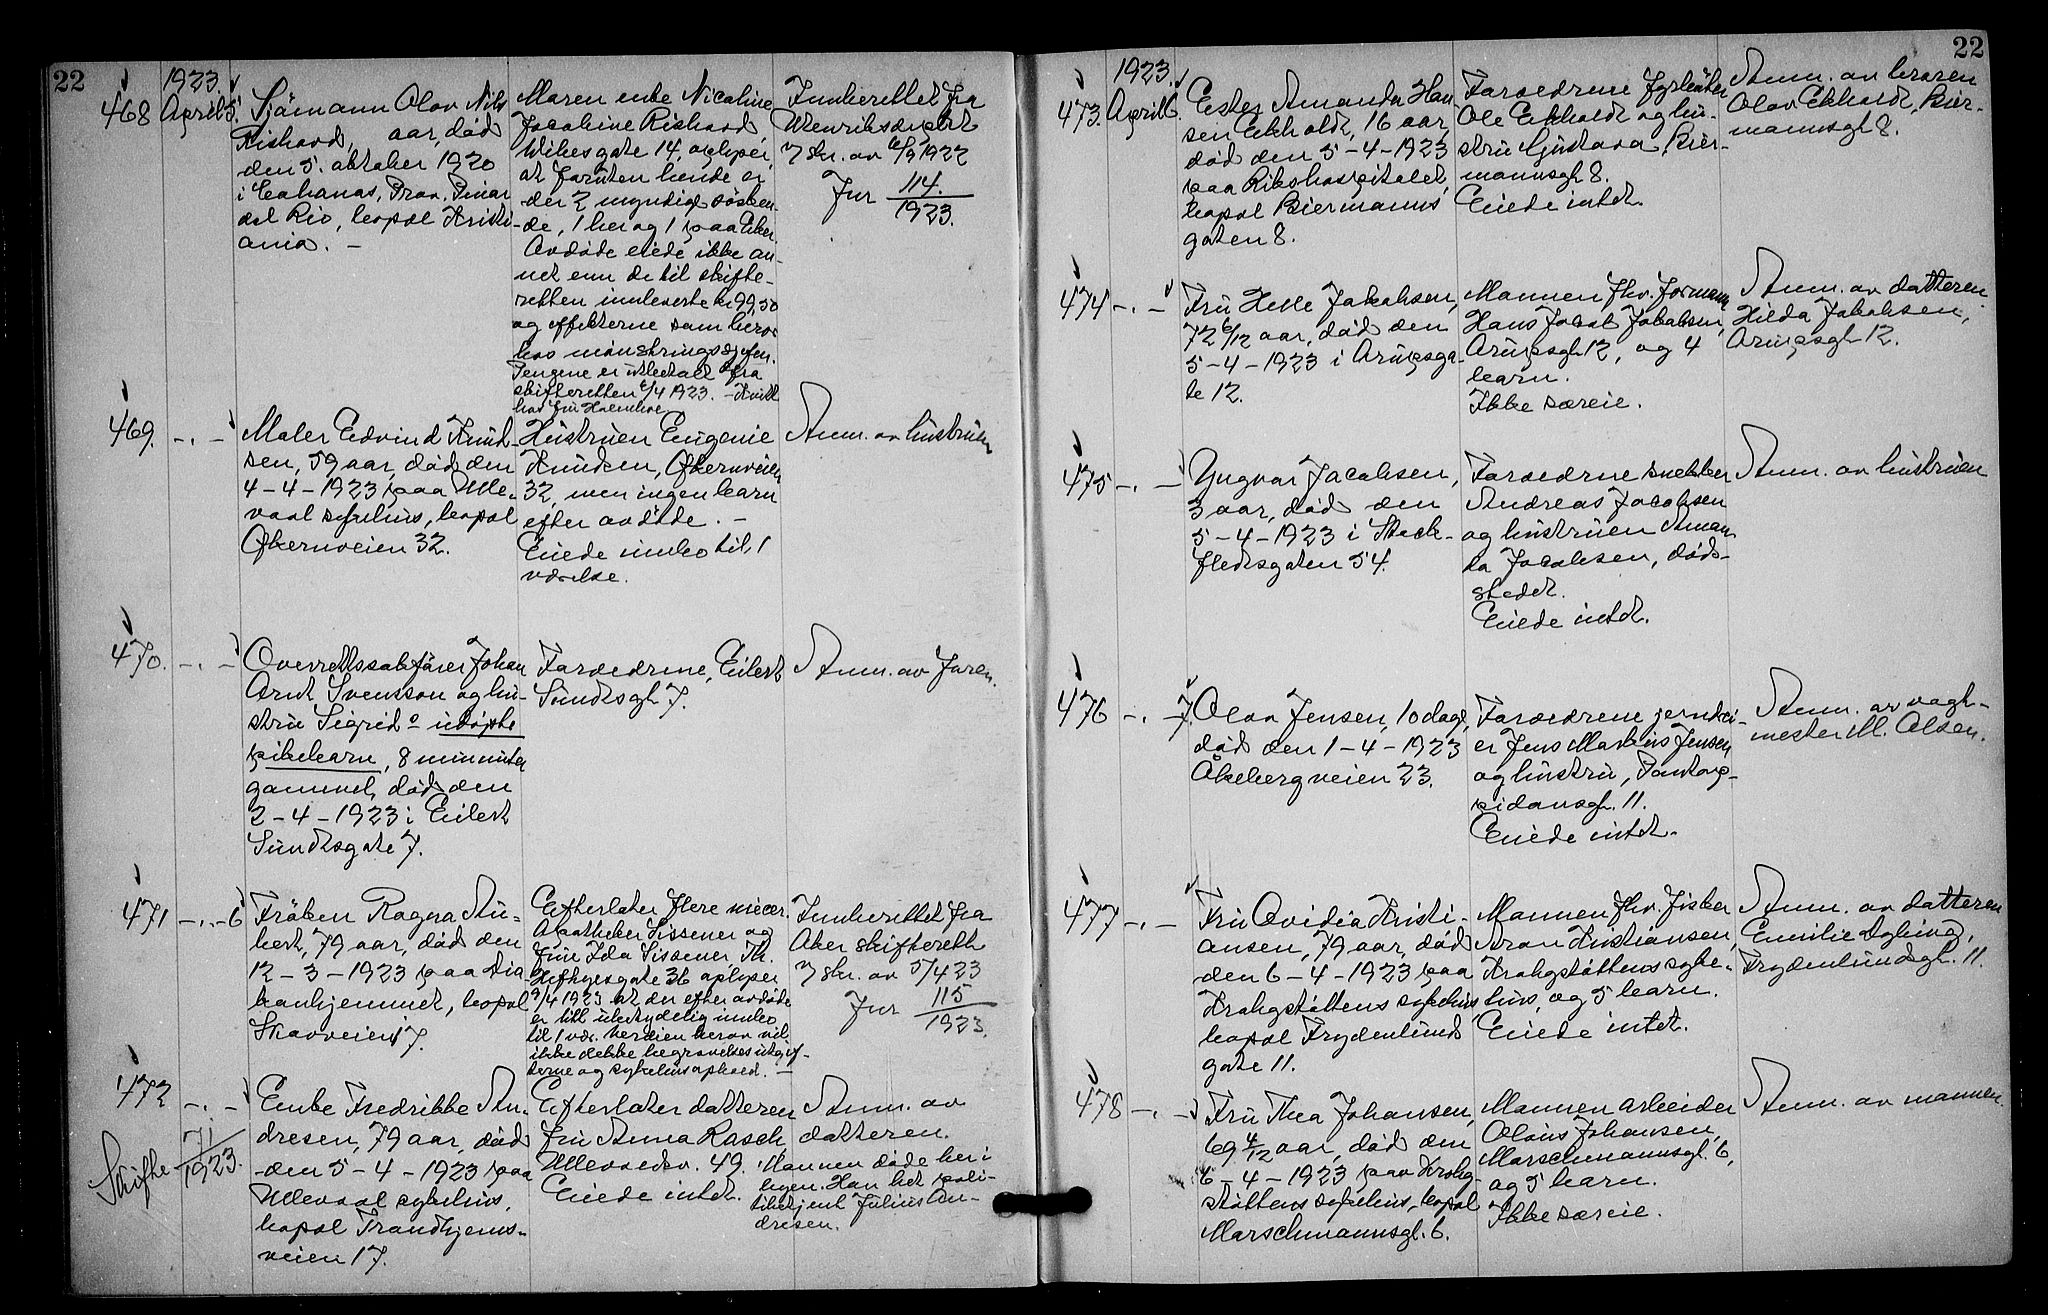 22
1923.
468 April 5. Sjömann Olav Nils
Rishovd, aar, död
den 5. oktober 1920
i Prov. Pinar
del Rio, bopæl Kristi-
ania. –
Moren enke Nicoline
Jacobine Rishovd,
Wibesgate 14, oplyser,
at foruten hende er
der 2 myndige søsken-
de, 1 her og 1 paa Eker.
Avdöde eiede ikke an-
net enn de til skifte-
retten innleverte kr 99,50
og effekterne som beror
hos mönstringssjefen.
Pengene er utbetalt fra
skifteretten 6/4 1923. – Kvitt.
hos frk Holmboe
Innberettet fra
Utenriksdepart
i skr. av 6/9 1922
Jnr 114.
1923.
469. -„- Maler Edvind Knud-
sen, 59 aar, död den
4-4-1923 paa Ulle-
vaal sykehus, bopæl
Økernveien 32.
Hustruen Eugenie
Knudsen, Økernveien
32, men ingen barn
efter avdöde. –
Eiede innbo til 1
værelse.
Anm. av hustruen
470. -„- Overrettssakförer Johan
Arnt Svensson og hu-
stru Sigrids udöpte
pikebarn, 8 minuter
gammel, död den
2-4-1923 i Eilert
Sundtsgate 7.
Forældrene, Eilert
Sundtsgt 7.
Anm. av faren.
471 -„- 6 Fröken Ragna Au-
bert, 79 aar, död den
12-3-1923 paa Dia
konhjemmet, bopæl
Skovveien 7.
Efterlater flere niecer.
Apotheker Sissener og
frue Ida Sissener, Th.
Heftyesgate 36 oplyser
9/4 1923 at der efter avdöde
er litt ubetydelig innbo
til 1 vær. Verdien herav vil
ikke dekke begravelsesutgif-
terne og sykehusophold. –
Innberettet fra
Aker skifterett
i skr. av 5/4 23
Jnr 115
1923.
472 -„- Enke Fredrikke An-
dresen, 79 aar, död
den 5-4-1923 paa
Ullevaal sykehus,
bopæl Trondhjems-
veien 17.
Skifte 71
1923.
Efterlater datteren
fru Anna Rasch,
Ullevaalsv. 49.
Eiede intet.
Anm. av
datteren.
Mannen döde her i
byen. Han het poli-
tibetjent Julius An-
dresen.
22
1923.
473. April 6. Ester Amanda Han
sen Ekholdt, 16 aar,
död den 5-4-1923
paa Rikshospitalet,
bopæl Biermanns
gaten 8.
Forældrene fyrböter
Ole Ekholdt og hu-
stru Gustava, Bier-
mannsgt 8.
Eiede intet.
Anm. av broren
Olav Ekholdt, Bier-
mannsgt 8.
474 -„- Fru Helle Jakobsen,
72 6/12 aar, död den
5-4-1923 i Arupsga-
te 12.
Mannen fhv. formann
Hans Jacob Jakobsen,
Arupsgt 12, og 4
barn.
Ikke særeie.
Anm. av datteren
Hilda Jakobsen,
Arupsgt 12.
475 -„- Yngvar Jacobsen,
3 aar, död den
5-4-1923 i Stock-
fletsgaten 54.
Forældrene snekker
Andreas Jacobsen
og hustruen Aman
da Jacobsen, döds-
stedet.
Eiede intet.
Anm. av hustruen
476 -„- 7. Olav Jensen, 10 dage,
död den 1-4-1923
Åkebergveien 23.
Forældrene jerndrei-
er Jens Markus Jensen
og hustru, Fontop-
pidansgt. 11.
Eiede intet.
Anm. av vagt-
mester M. Olsen.
477 -„- Fru Ovidia Kristi-
ansen, 79 aar, död
den 6-4-1923 paa
Krohgstöttens sykehus,
bopæl Frydenlunds
gate 11.
Mannen fhv. fisker
Aron Kristiansen,
Krohgstöttens syke-
hus, og 5 barn.
Eiede intet.
Anm. av datteren
Emilie Dybing,
Frydenlundsgt. 11.
478 -„- Fru Thea Johansen,
69 4/12 aar, död den
6-4-1923 paa Krohg-
stöttens sykehus, bopæl
Marschmannsgt. 6.
Mannen arbeider
Olaus Johansen,
Marschmannsgt. 6,
og 5 barn.
Ikke særeie.
Anm. av mannen